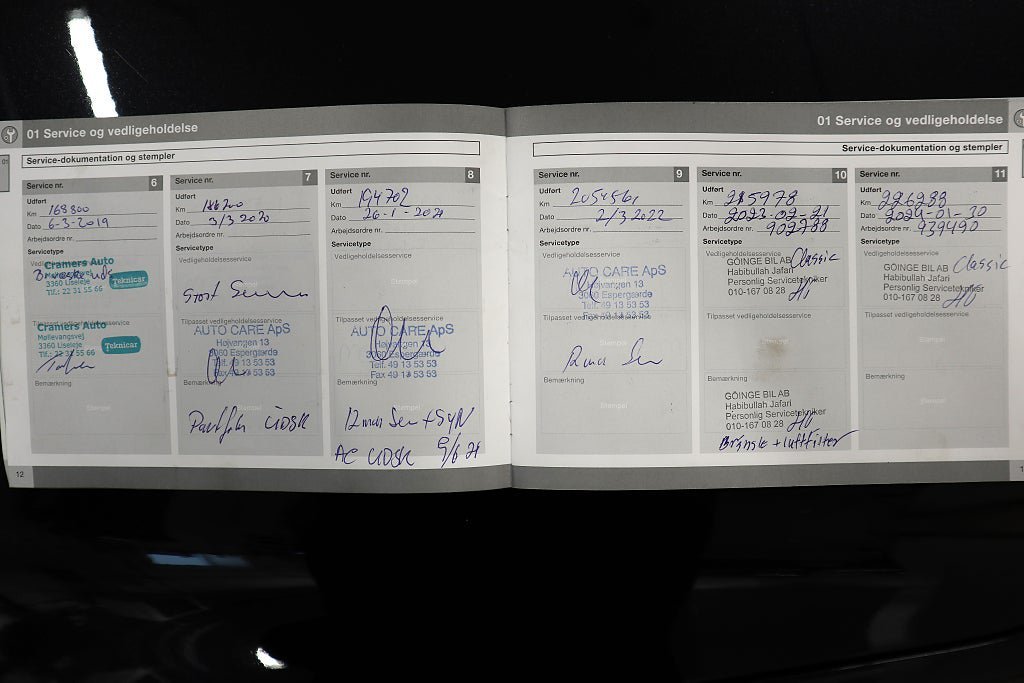 01 Service og vedligeholdelse
01
Service-dokumentation og stempler
Service nr. 6
Udført
Km 168800
Dato 6-3-2019
Arbejdsordre nr.
Servicetype
Vedligeholdelsesservice
Cramers Auto
Møllevangsvej
3360 Liseleje
Tlf.: 22 31 55 66
Teknicar
Tilpasset vedligeholdelsesservice
Cramers Auto
Møllevangsvej
3360 Liseleje
Tlf.: 22 31 55 66
Teknicar
Bemærkning
Stempel
12
Service nr. 7
Udført
Km
Dato 3/3 2020
Arbejdsordre nr.
Servicetype
Vedligeholdelsesservice
Stort
Tilpasset vedligeholdelsesservice
AUTO CARE ApS
Højvangen 13
3060 Espergærde
Telf. 49 13 53 53
Fax 49 13 53 53
Bemærkning
Stempel
UDSK
Service nr. 8
Udført
Km 194702
Dato 26-1-2021
Arbejdsordre nr.
Servicetype
Vedligeholdelsesservice
Stempel
Tilpasset vedligeholdelsesservice
AUTO CARE ApS
Højvangen 13
3060 Espergærde
Telf. 49 13 53 53
Fax 49 13 53 53
Bemærkning
Stempel
+ SYN
AC UDSK 9/6 21
01 Service og vedligeholdelse
Service-dokumentation og stempler
Service nr. 9
Udført
Km
Dato 2/3 2022
Arbejdsordre nr.
Servicetype
Vedligeholdelsesservice
AUTO CARE ApS
Højvangen 13
3060 Espergærde
Telf. 49 13 53 53
Fax 49 13 53 53
Tilpasset vedligeholdelsesservice
Bemærkning
Stempel
Service nr. 10
Udført
Km 215978
Dato 2023-02-21
Arbejdsordre nr. 902788
Servicetype
Vedligeholdelsesservice
GÖINGE BIL AB Classic
Habibullah Jafari
Personlig Servicetekniker
010-167 08 28
Tilpasset vedligeholdelsesservice
Bemærkning
GÖINGE BIL AB
Habibullah Jafari
Personlig Servicetekniker
010-167 08 28
Brämsk + luftfilter
Service nr. 11
Udført
Km 226288
Dato 2024-01-30
Arbejdsordre nr. 939490
Servicetype
Vedligeholdelsesservice
GÖINGE BIL AB Classic
Habibullah Jafari
Personlig Servicetekniker
010-167 08 28
Tilpasset vedligeholdelsesservice
Stempel
Bemærkning
Stempel